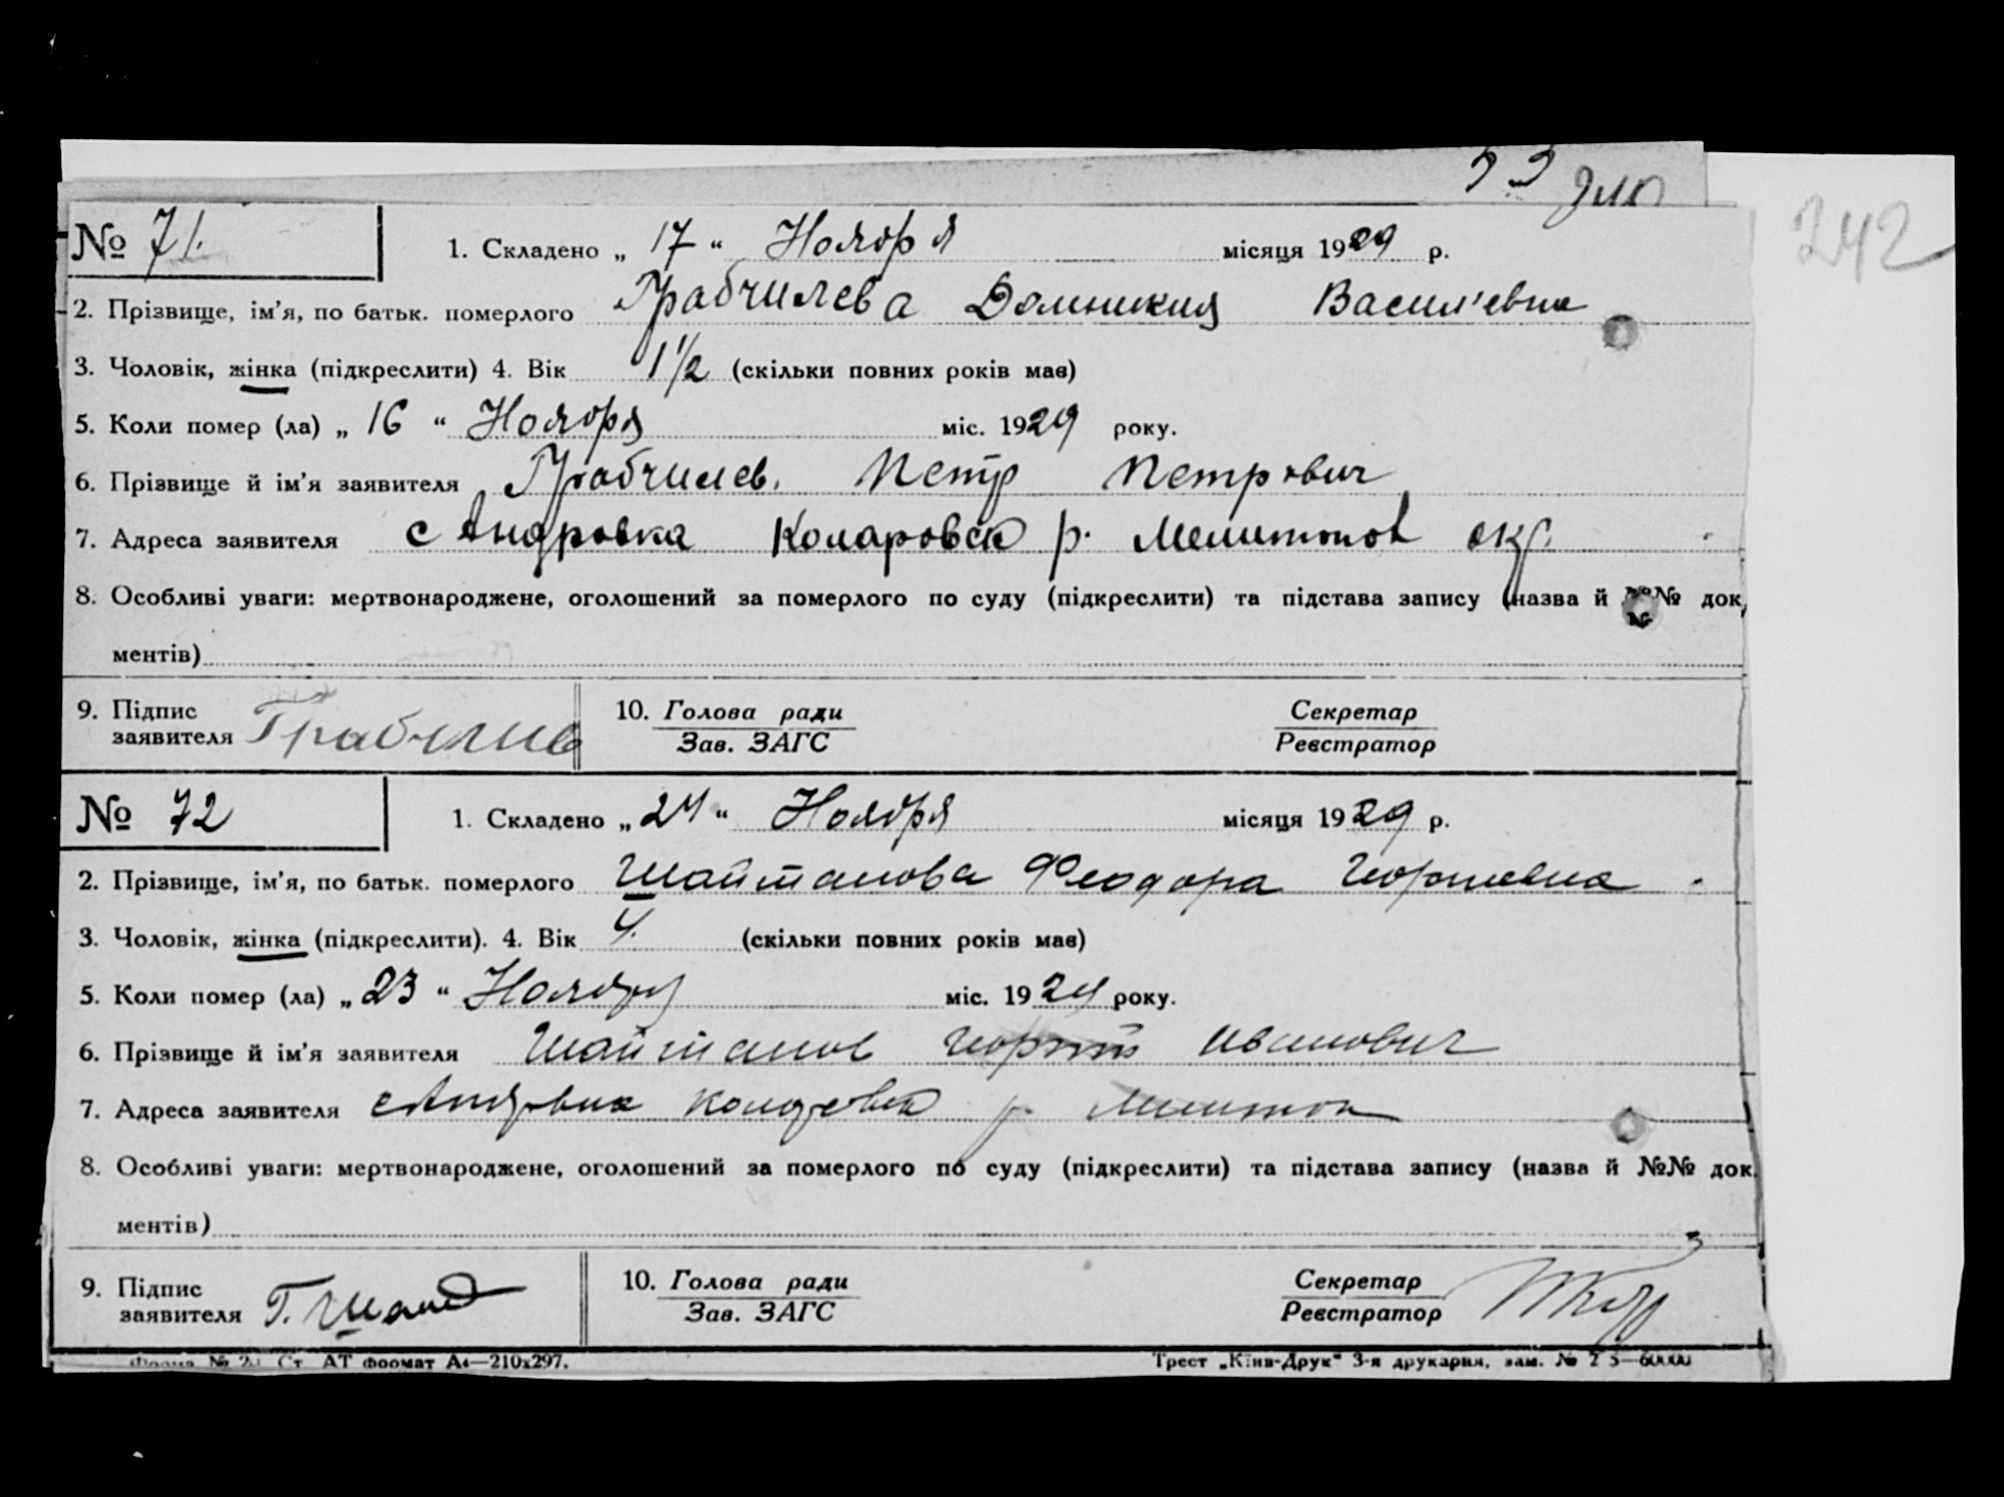 242
№ 71. 1. Складено „ 17 “ Ноября місяця 1929 р.
2. Прізвище, ім’я, по батьк. померлого Грабчилева Домникия Васил'евна
3. Чоловік, жінка (підкреслити) 4. Вік 1 1/2 (скільки повних років має)
5. Коли помер (ла) „ 16 “ Ноября міс. 1929 року.
6. Прізвище й ім’я заявителя Грабчилев. Петр Петрович
7. Адреса заявителя с Андровка Коларовск р. Мелитопол окр.
8. Особливі уваги: мертвонароджене, оголошений за померлого по суду (підкреслити) та підстава запису (назва й №№ док
ментів)
9. Підпис заявителя Грабчилев 10. Голова ради Секретар
Зав. ЗАГС Реєстратор
№ 72 1. Складено „ 24 “ Ноября місяця 1929 р.
2. Прізвище, ім’я, по батьк. померлого Шайтанова Феодора Георгиевна
3. Чоловік, жінка (підкреслити). 4. Вік 4. (скільки повних років має)
5. Коли помер (ла) „ 23 “ Ноября міс. 1929 року.
6. Прізвище й ім’я заявителя Шайтанов Георгий Иванович
7. Адреса заявителя с Андровка Коларовск р. Мелитоп
8. Особливі уваги: мертвонароджене, оголошений за померлого по суду (підкреслити) та підстава запису (назва й №№ док.
ментів)
9. Підпис заявителя Г. Шайт 10. Голова ради Секретар
Зав. ЗАГС Реєстратор
Ст. АТ формат А4—210х297. Трест „Київ-Друк“ 3-я друкарня, зам. №